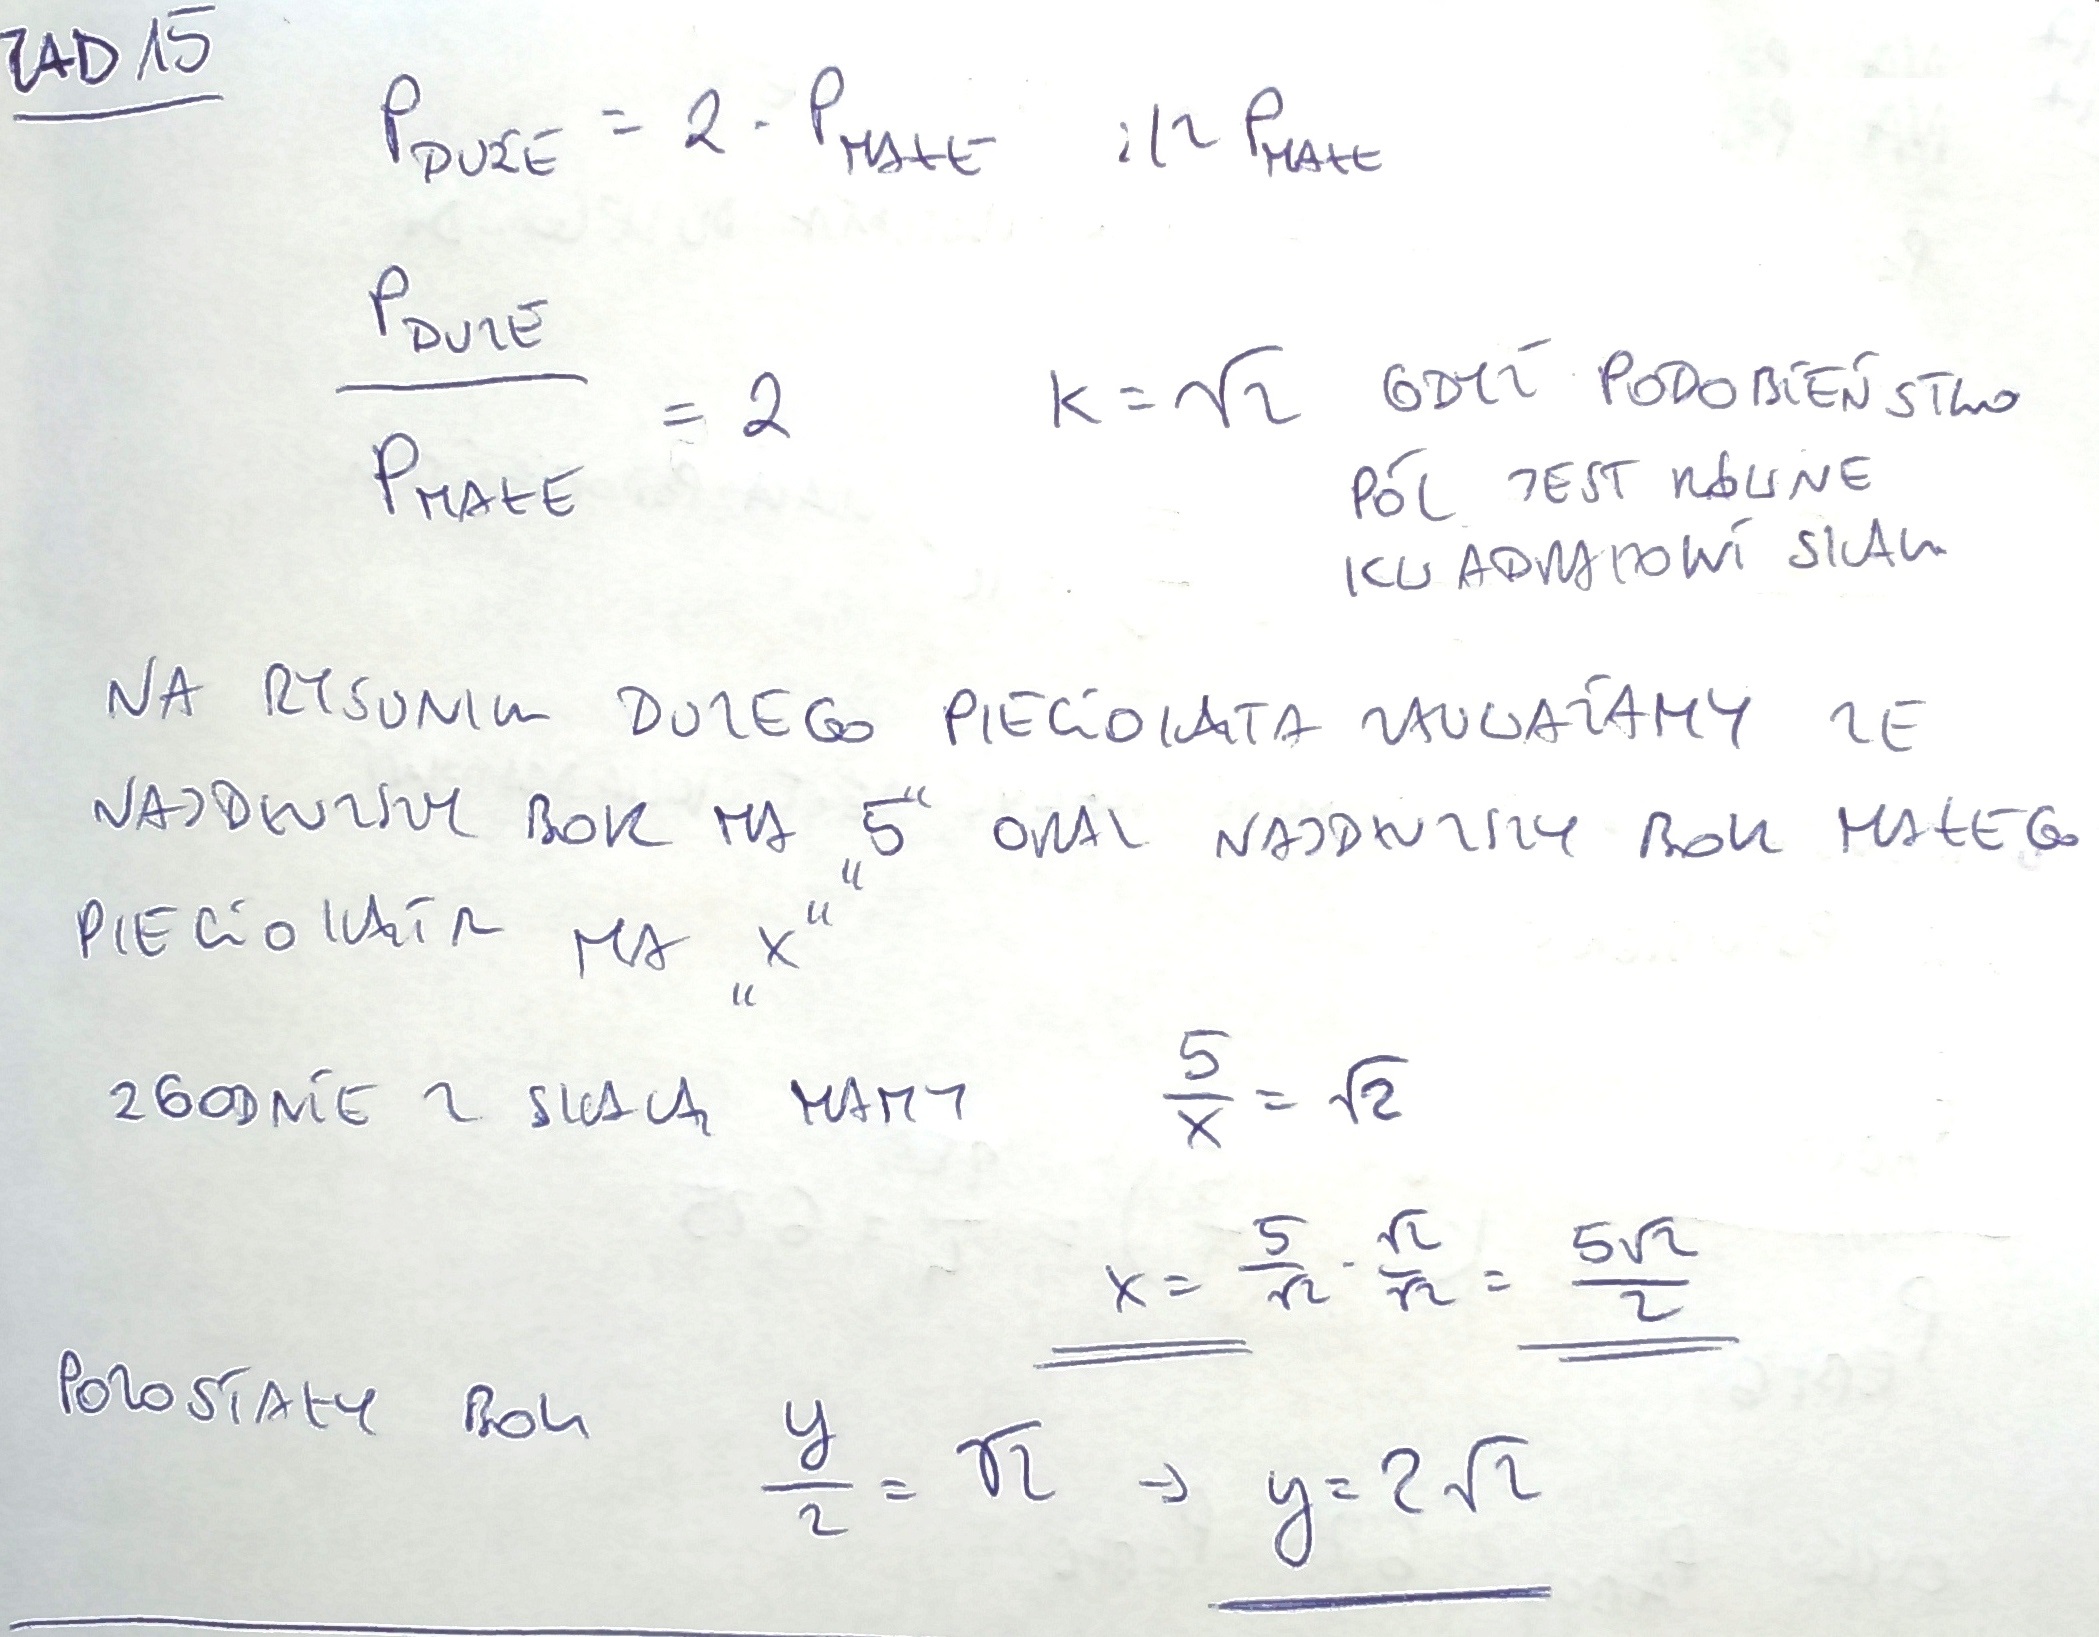 ZAD 15
P DUŻE = 2 · P MAŁE :/2 P MAŁE
P DUŻE / P MAŁE = 2 K = √2 GDYŻ PODOBIEŃSTWO
PÓL JEST RÓWNE
KWADRATOWI SKALI
NA RYSUNKU DUŻEGO PIĘCIOKĄTA ZAUWAŻAMY ŻE
NAJDŁUŻSZY BOK MA „5“ ORAZ NAJDŁUŻSZY BOK MAŁEGO
PIĘCIOKĄTA MA „x“
ZGODNIE Z SKALĄ MAMY 5/x = √2
x = 5/√2 · √2/√2 = 5√2/2
POZOSTAŁY BOK y/2 = √2 → y = 2√2